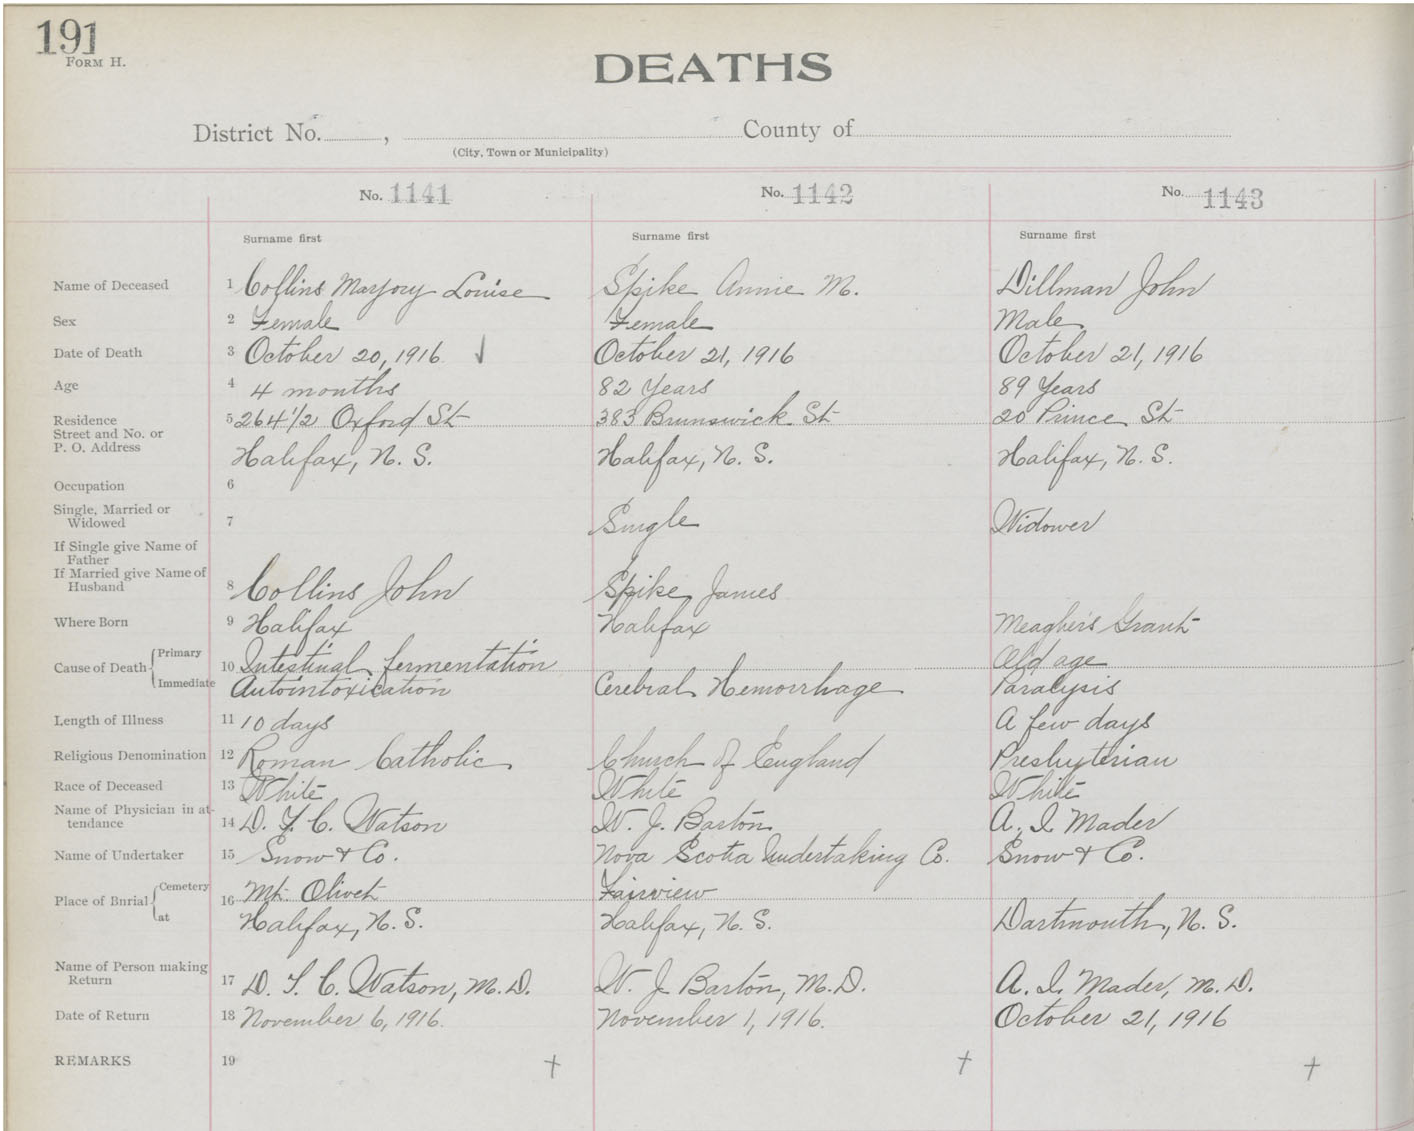 191
FORM H.
DEATHS
District No. , County of
(City, Town or Municipality)
No. 1141 No. 1142 No. 1143
Surname first Surname first Surname first
Name of Deceased 1 Collins Marjory Louise Spike Annie M. Dillman John
Sex 2 Female Female Male
Date of Death 3 October 20, 1916 October 21, 1916 October 21, 1916
Age 4 4 months 82 Years 89 Years
Residence 5 264 1/2 Oxford St 383 Brunswick St 20 Prince St
Street and No. or
P. O. Address Halifax, N. S. Halifax, N. S. Halifax, N. S.
Occupation 6
Single, Married or
Widowed 7 Single Widower
If Single give Name of
Father
If Married give Name of
Husband 8 Collins John Spike, James
Where Born 9 Halifax Halifax Meagher's Grant
Cause of Death Primary 10 Intestinal fermentation Old age
Immediate Autointoxication Cerebral Hemorrhage Paralysis
Length of Illness 11 10 days A few days
Religious Denomination 12 Roman Catholic Church of England Presbyterian
Race of Deceased 13 White White White
Name of Physician in at-
tendance 14 D. F. C. Watson W. J. Barton A. I. Mader
Name of Undertaker 15 Snow & Co. Nova Scotia Undertaking Co. Snow & Co.
Place of Burial Cemetery 16 Mt. Olivet Fairview
at Halifax, N. S. Halifax, N. S. Dartmouth, N. S.
Name of Person making
Return 17 D. F. C. Watson, M. D. W. J. Barton, M. D. A. I. Mader, M. D.
Date of Return 18 November 6, 1916. November 1, 1916. October 21, 1916
REMARKS 19